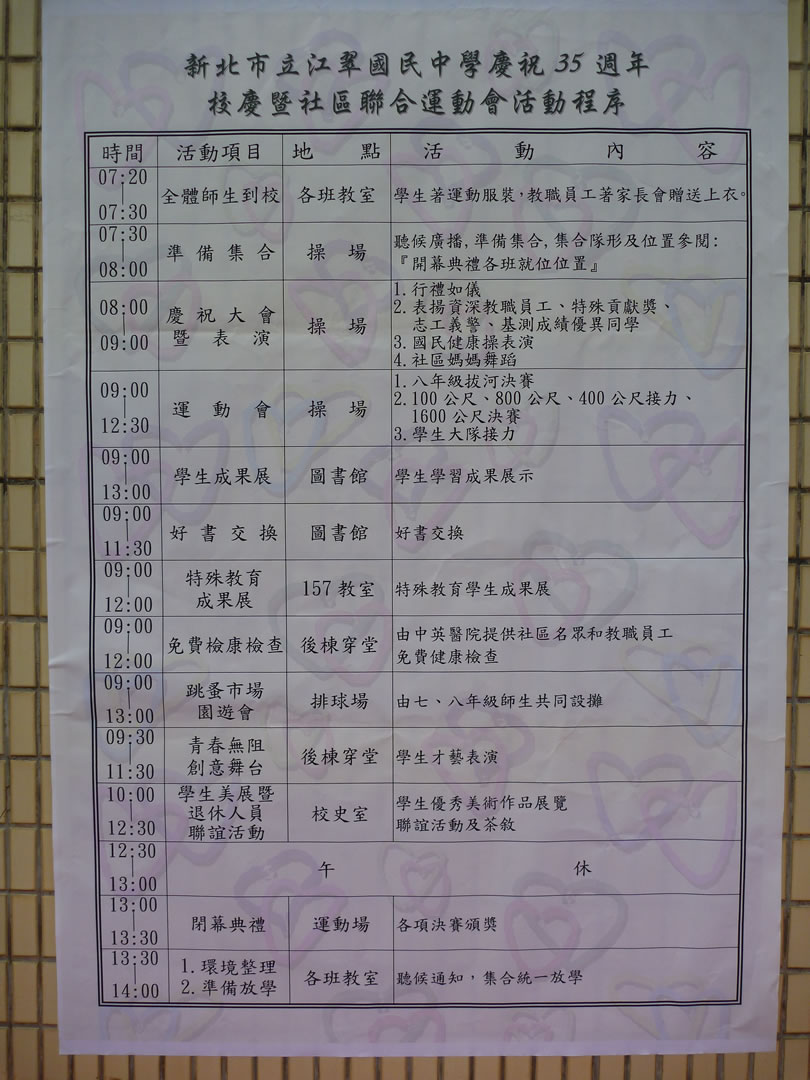 新北市立江翠國民中學慶祝 35 週年
校慶暨社區聯合運動會活動程序
時間 活動項目 地點 活動內容
07:20
07:30
全體師生到校 各班教室 學生著運動服裝,教職員工著家長會贈送上衣。
07:30
08:00
準備集合 操場
聽候廣播, 準備集合, 集合隊形及位置參閱:
『開幕典禮各班就位位置』
08:00
09:00
慶祝大會
暨表演
操場
1. 行禮如儀
2. 表揚資深教職員工、特殊貢獻獎、
志工義警、基測成績優異同學
3. 國民健康操表演
4. 社區媽媽舞蹈
09:00
12:30
運動會 操場
1. 八年級拔河決賽
2. 100 公尺、800 公尺、400 公尺接力、
1600 公尺決賽
3. 學生大隊接力
09:00
13:00
學生成果展 圖書館 學生學習成果展示
09:00
11:30
好書交換 圖書館 好書交換
09:00
12:00
特殊教育
成果展
157 教室 特殊教育學生成果展
09:00
12:00
免費檢康檢查 後棟穿堂
由中英醫院提供社區名眾和教職員工
免費健康檢查
09:00
13:00
跳蚤市場
園遊會
排球場 由七、八年級師生共同設攤
09:30
11:30
青春無阻
創意舞台
後棟穿堂 學生才藝表演
10:00
12:30
學生美展暨
退休人員
聯誼活動
校史室
學生優秀美術作品展覽
聯誼活動及茶敘
12:30
13:00
午休
13:00
13:30
閉幕典禮 運動場 各項決賽頒獎
13:30
14:00
1. 環境整理
2. 準備放學
各班教室 聽候通知,集合統一放學